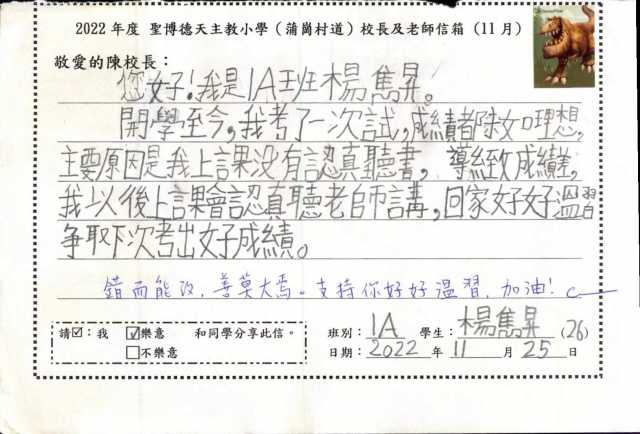 2022 年度 聖博德天主教小學（蒲崗村道）校長及老師信箱（11月）
敬愛的陳校長：
您好！我是1A班楊雋昇。
開學至今，我考了一次試，成績都唔如理想，
主要原因是我上課没有認真聽書，導緻成績差，
我以後上課會認真聽老師講，回家好好溫習
争取下次考出好成績。
錯而能改，善莫大焉。支持你好好溫習，加油！
請☑：我 ☑樂意 和同學分享此信。
□不樂意
班別：1A 學生：楊雋昇 (26)
日期：2022 年 11 月 25 日